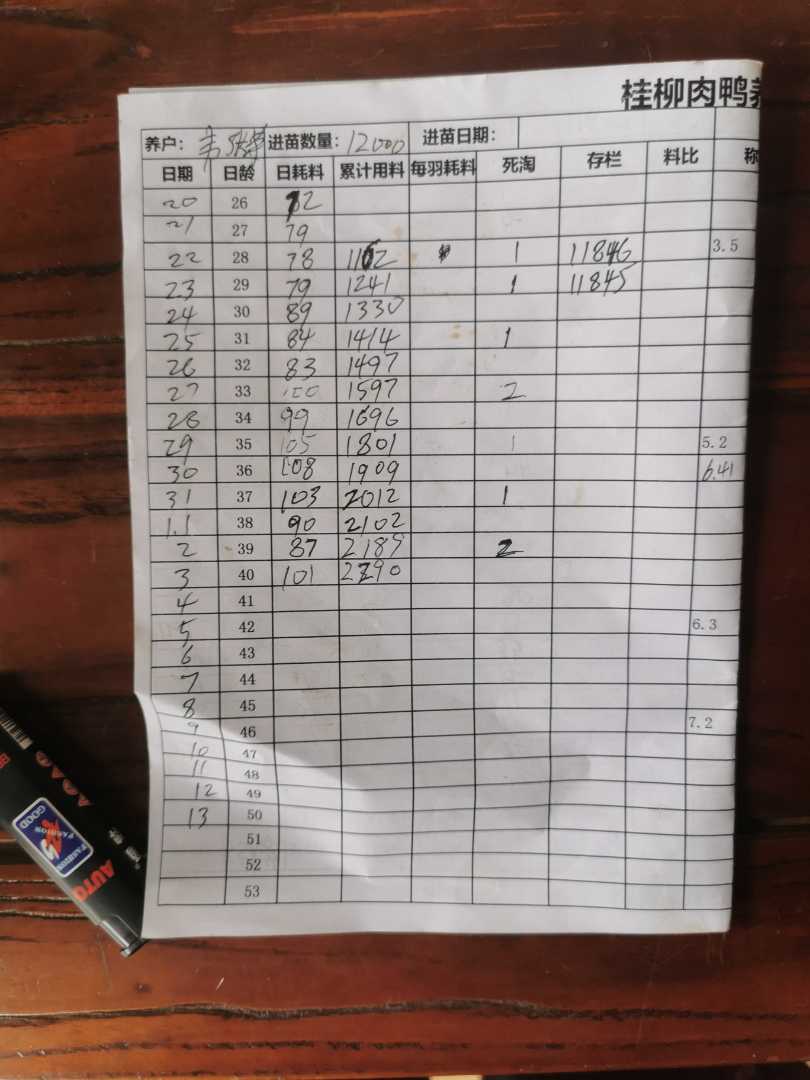 桂柳肉鸭养
养户: 进苗数量: 12000 进苗日期:
日期 日龄 日耗料 累计用料 每羽耗料 死淘 存栏 料比 称
20 26 72
21 27 79
22 28 78 1162 1 11846 3.5
23 29 79 1241 1 11845
24 30 89 1330
25 31 84 1414 1
26 32 83 1497
27 33 100 1597 2
28 34 99 1696
29 35 105 1801 1 5.2
30 36 108 1909 6.41
31 37 103 2012 1
1.1 38 90 2102
2 39 87 2189 2
3 40 101 2290
4 41
5 42 6.3
6 43
7 44
8 45
9 46 7.2
10 47
11 48
12 49
13 50
51
52
53
GOOD
FASHION
FASHION
AUTO